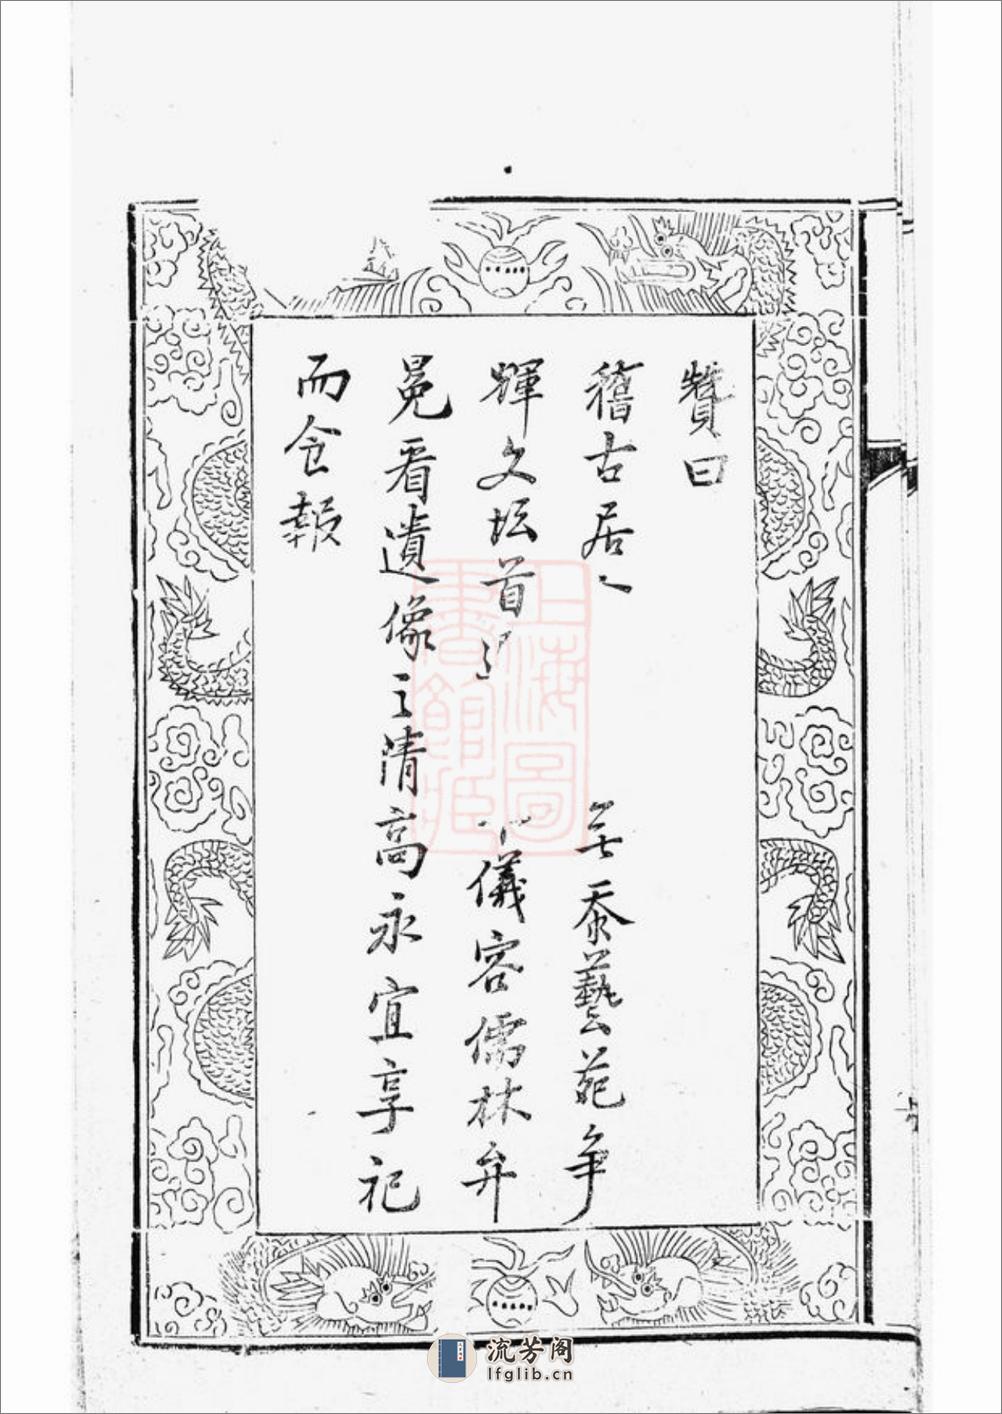 贊曰
稽古居 無忝藝苑争
輝文坛首 儀容儒林弁
冕看遺像之清高永宜享祀
而食報
上海圖書館藏
流芳阁
lfglib.cn